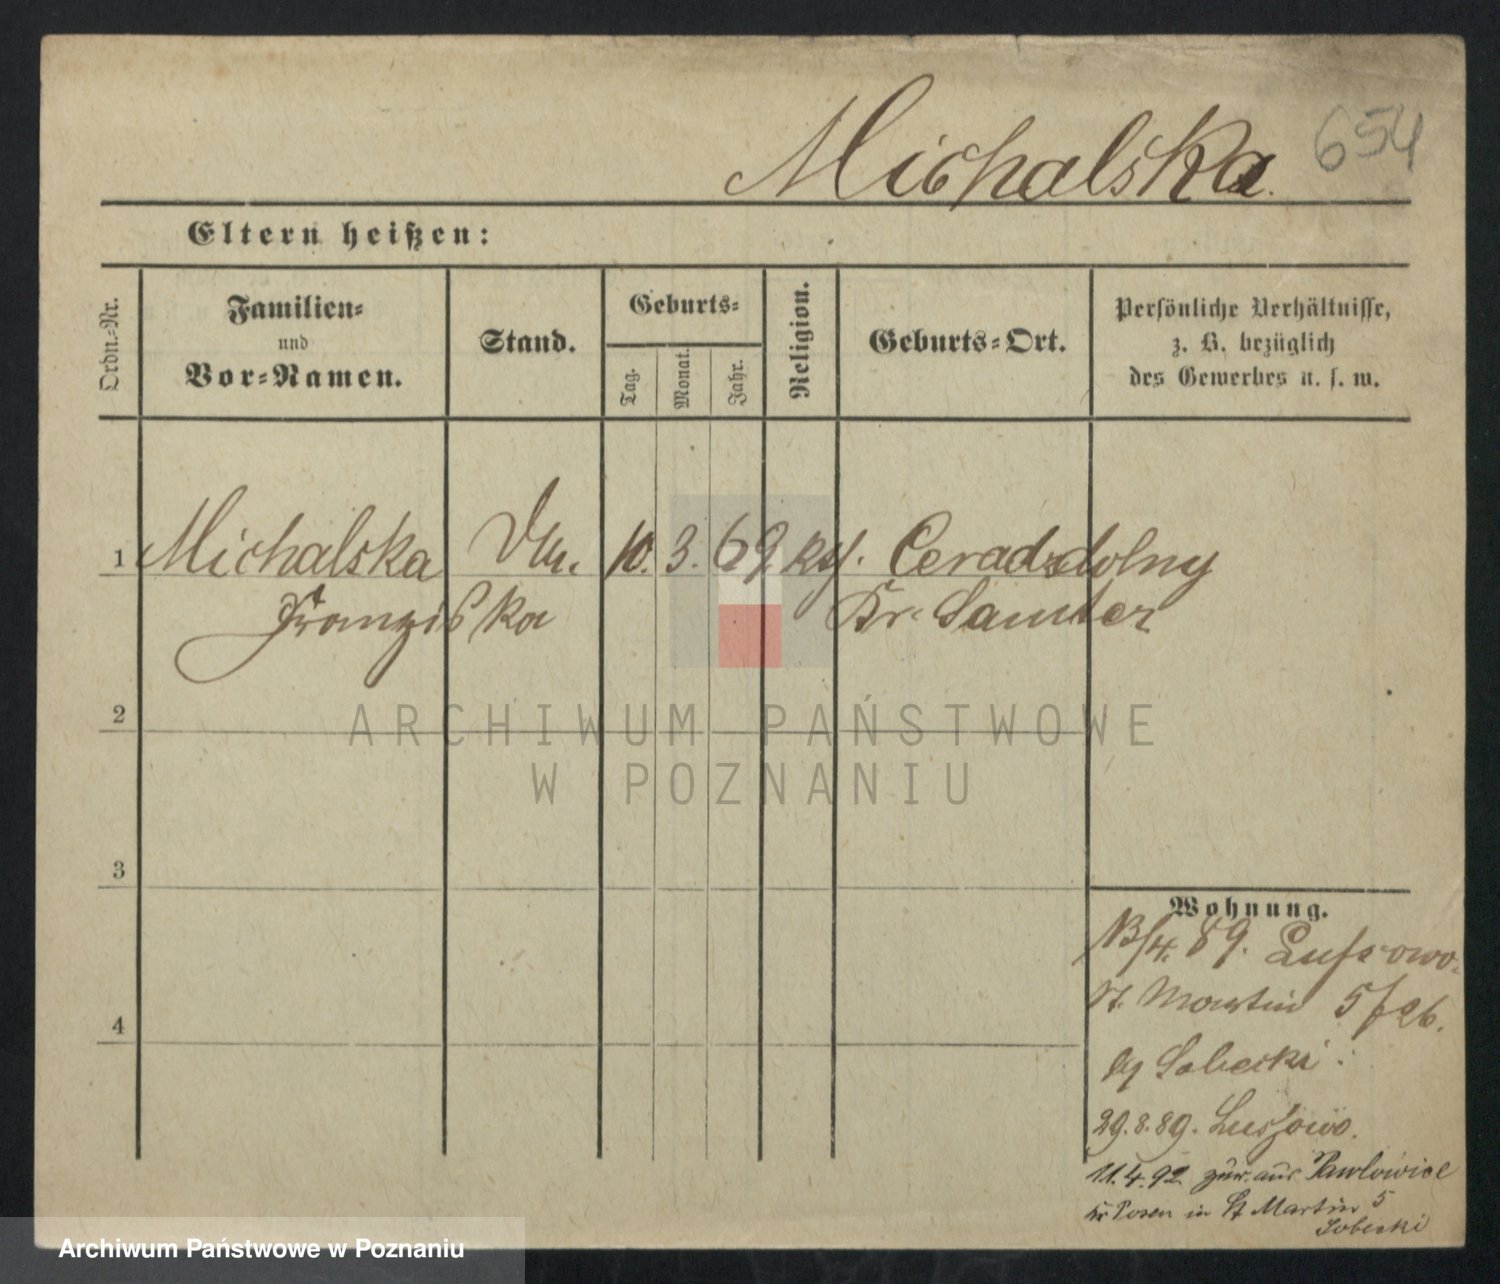 Michalska. 654
Eltern heißen:
Ordn.-Nr.
Familien-
und
Vor-Namen.
Stand.
Geburts-
Tag.
Monat.
Jahr.
Religion.
Geburts-Ort.
Persönliche Verhältnisse,
z. B. bezüglich
des Gewerbes u. s. w.
1 Michalska 10. 3. 69 Ceradzdolny
Franziska Kr. Samter
2
3
4
Wohnung.
89. Lussowo.
St. Martin 5
Sobecki
29.8.89. Lussowo.
11.4.92 zur. aus Pawlowice
Kr Posen in St Martin 5
Sobecki
ARCHIWUM PAŃSTWOWE
W POZNANIU
Archiwum Państwowe w Poznaniu